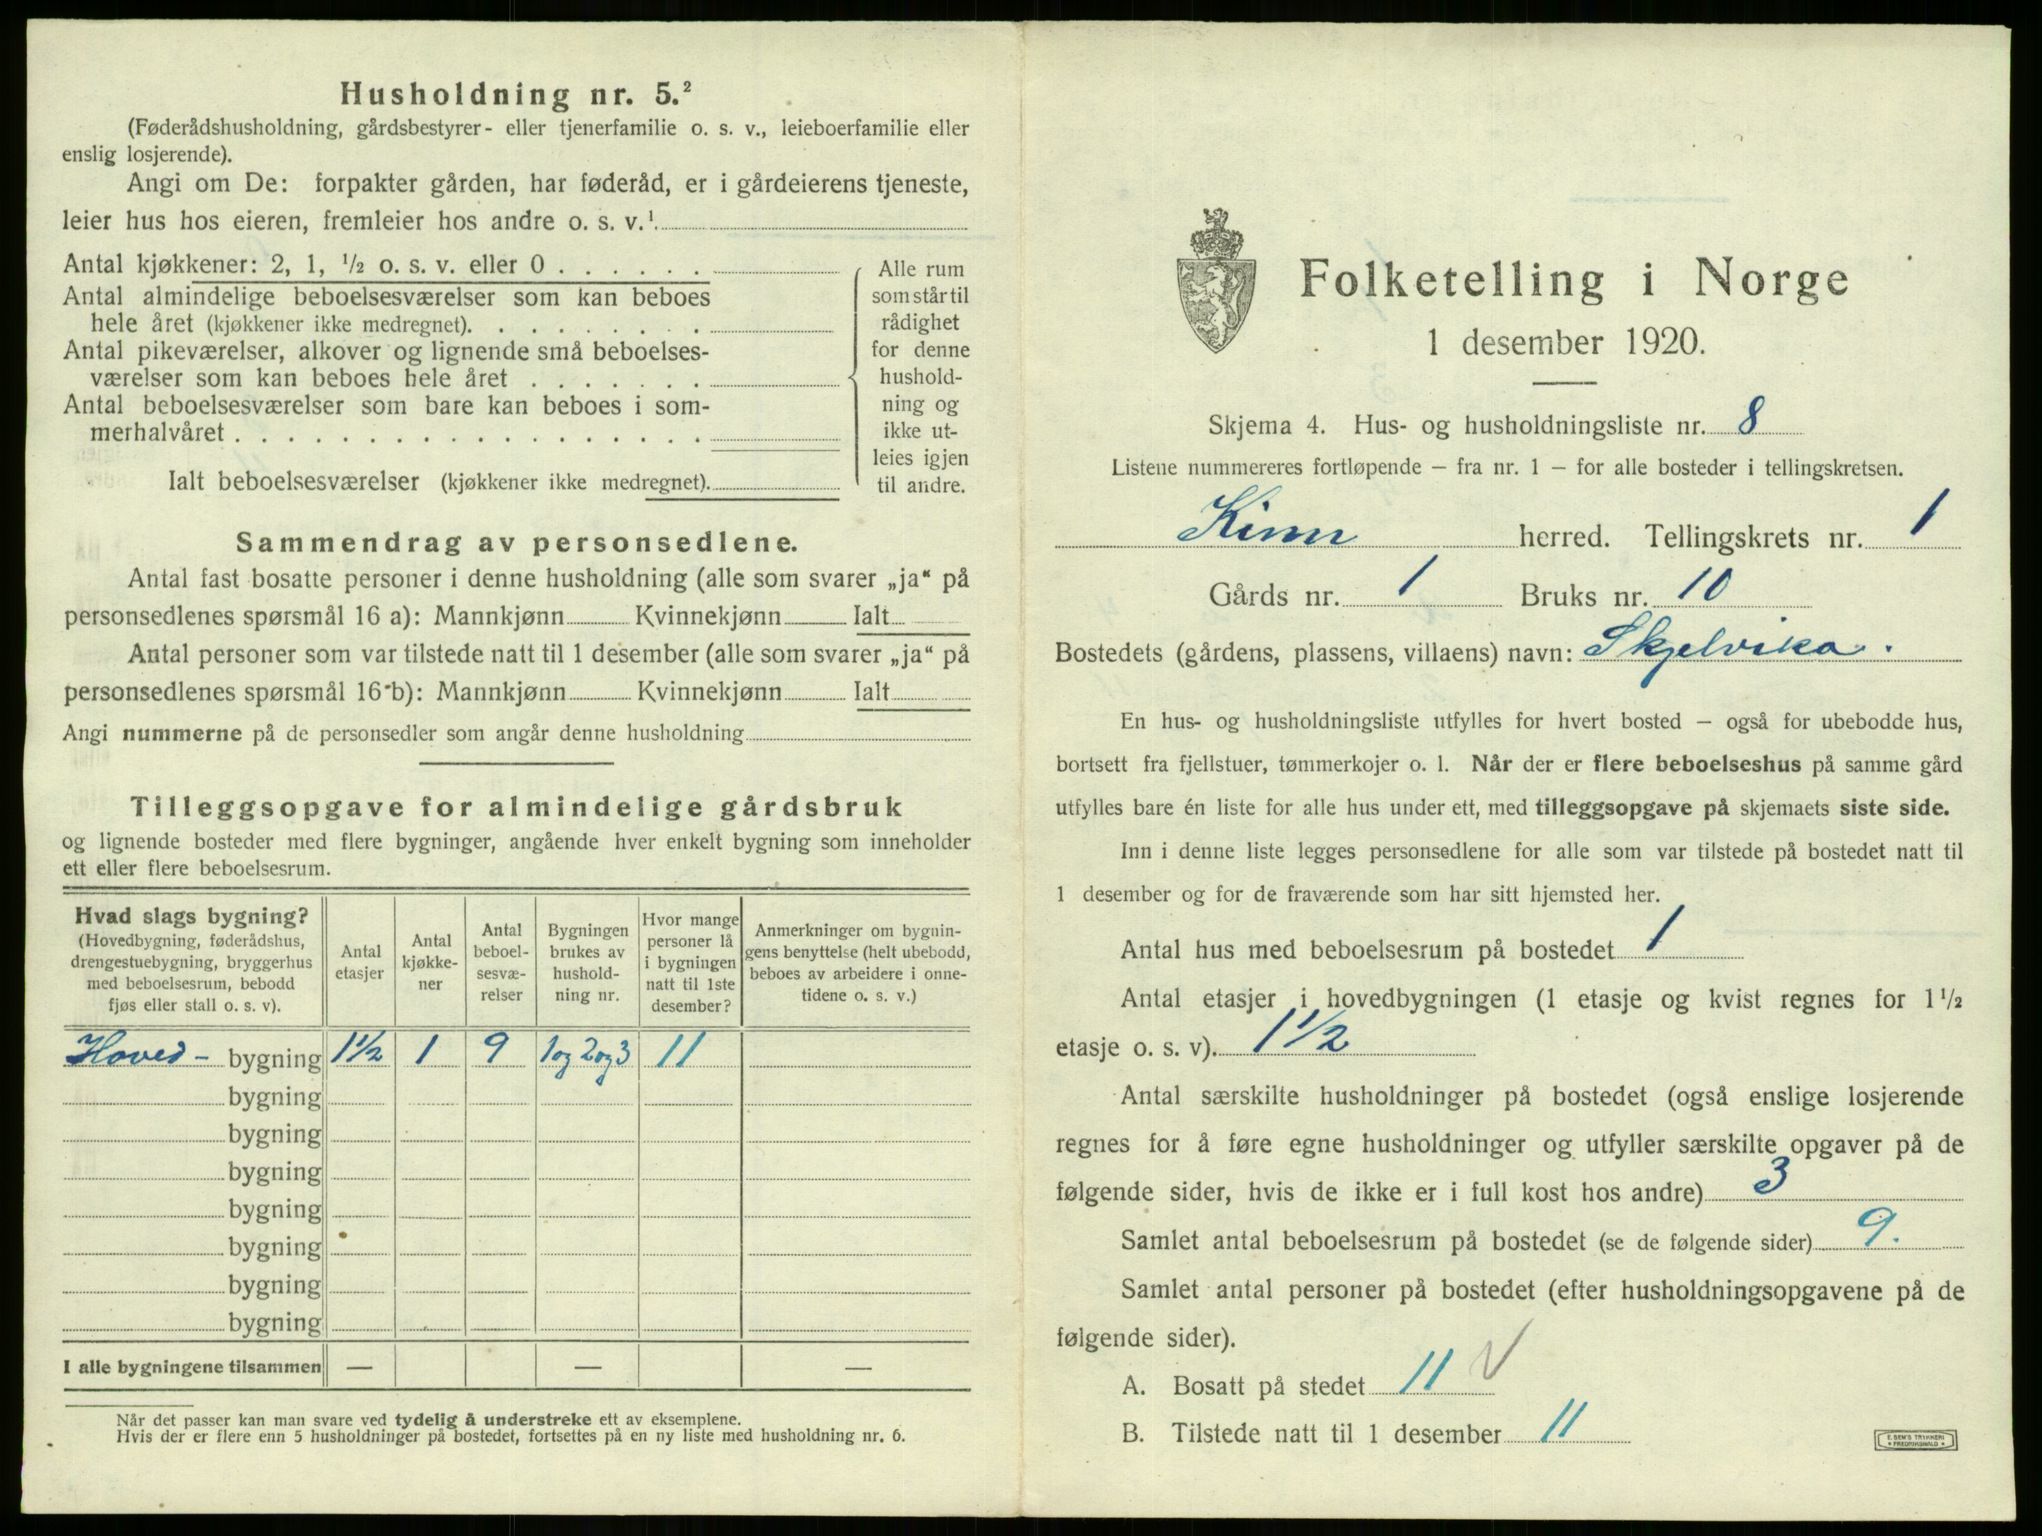 Husholdning nr. 5.²
(Føderådshusholdning, gårdsbestyrer- eller tjenerfamilie o. s. v., leieboerfamilie eller
enslig losjerende).
Angi om De: forpakter gården, har føderåd, er i gårdeierens tjeneste,
leier hus hos eieren, fremleier hos andre o. s. v.¹
Antal kjøkkener: 2, 1, ½ o. s. v. eller 0 . . . . . .
Antal almindelige beboelsesværelser som kan beboes
hele året (kjøkkener ikke medregnet). . . . . . . . .
Antal pikeværelser, alkover og lignende små beboelses-
værelser som kan beboes hele året . . . . . . .
Antal beboelsesværelser som bare kan beboes i som-
merhalvåret . . . . . . . . . . . . . . . . . .
Ialt beboelsesværelser (kjøkkener ikke medregnet).
Alle rum
som står til
rådighet
for denne
hushold-
ning og
ikke ut-
leies igjen
til andre.
Sammendrag av personsedlene.
Antal fast bosatte personer i denne husholdning (alle som svarer „ja“ på
personsedlenes spørsmål 16 a): Mannkjønn Kvinnekjønn Ialt
Antal personer som var tilstede natt til 1 desember (alle som svarer „ja“ på
personsedlenes spørsmål 16 b): Mannkjønn Kvinnekjønn Ialt
Angi nummerne på de personsedler som angår denne husholdning
Tilleggsopgave for almindelige gårdsbruk
og lignende bosteder med flere bygninger, angående hver enkelt bygning som inneholder
ett eller flere beboelsesrum.
Hvad slags bygning?
(Hovedbygning, føderådshus,
drengestuebygning, bryggerhus
med beboelsesrum, bebodd
fjøs eller stall o. s. v).
Antal
etasjer
Antal
kjøkke-
ner
Antal
beboel-
sesvæ-
relser
Bygningen
brukes av
hushold-
ning nr.
Hvor mange
personer lå
i bygningen
natt til 1ste
desember?
Anmerkninger om bygnin-
gens benyttelse (helt ubebodd,
beboes av arbeidere i onne-
tidene o. s. v.)
Hoved- bygning 1½ 1 9 1 og 2 og 3 11
bygning
bygning
bygning
bygning
bygning
bygning
bygning
I alle bygningene tilsammen — — —
Når det passer kan man svare ved tydelig å understreke ett av eksemplene.
Hvis der er flere enn 5 husholdninger på bostedet, fortsettes på en ny liste med husholdning nr. 6.
Folketelling i Norge
1 desember 1920.
Skjema 4. Hus- og husholdningsliste nr. 8
Listene nummereres fortløpende – fra nr. 1 – for alle bosteder i tellingskretsen.
Kinn herred. Tellingskrets nr. 1
Gårds nr. 1 Bruks nr. 10
Bostedets (gårdens, plassens, villaens) navn: Skjelvika.
En hus- og husholdningsliste utfylles for hvert bosted – også for ubebodde hus,
bortsett fra fjellstuer, tømmerkojer o. l. Når der er flere beboelseshus på samme gård
utfylles bare én liste for alle hus under ett, med tilleggsopgave på skjemaets siste side.
Inn i denne liste legges personsedlene for alle som var tilstede på bostedet natt til
1 desember og for de fraværende som har sitt hjemsted her.
Antal hus med beboelsesrum på bostedet 1
Antal etasjer i hovedbygningen (1 etasje og kvist regnes for 1½
etasje o. s. v). 1½
Antal særskilte husholdninger på bostedet (også enslige losjerende
regnes for å føre egne husholdninger og utfyller særskilte opgaver på de
følgende sider, hvis de ikke er i full kost hos andre) 3
Samlet antal beboelsesrum på bostedet (se de følgende sider) 9.
Samlet antal personer på bostedet (efter husholdningsopgavene på de
følgende sider).
A. Bosatt på stedet 11 ✓
B. Tilstede natt til 1 desember 11
E. SEM'S TRYKKERI
FREDRIKSHALD